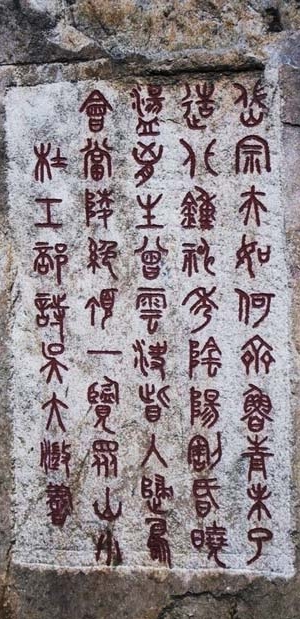 岱宗夫如何齊魯青未了
造化鍾神秀陰陽割昏曉
盪胷生曾雲決眥入歸鳥
會當陵絕頂一覽眾山小
杜工部詩吳大澂書